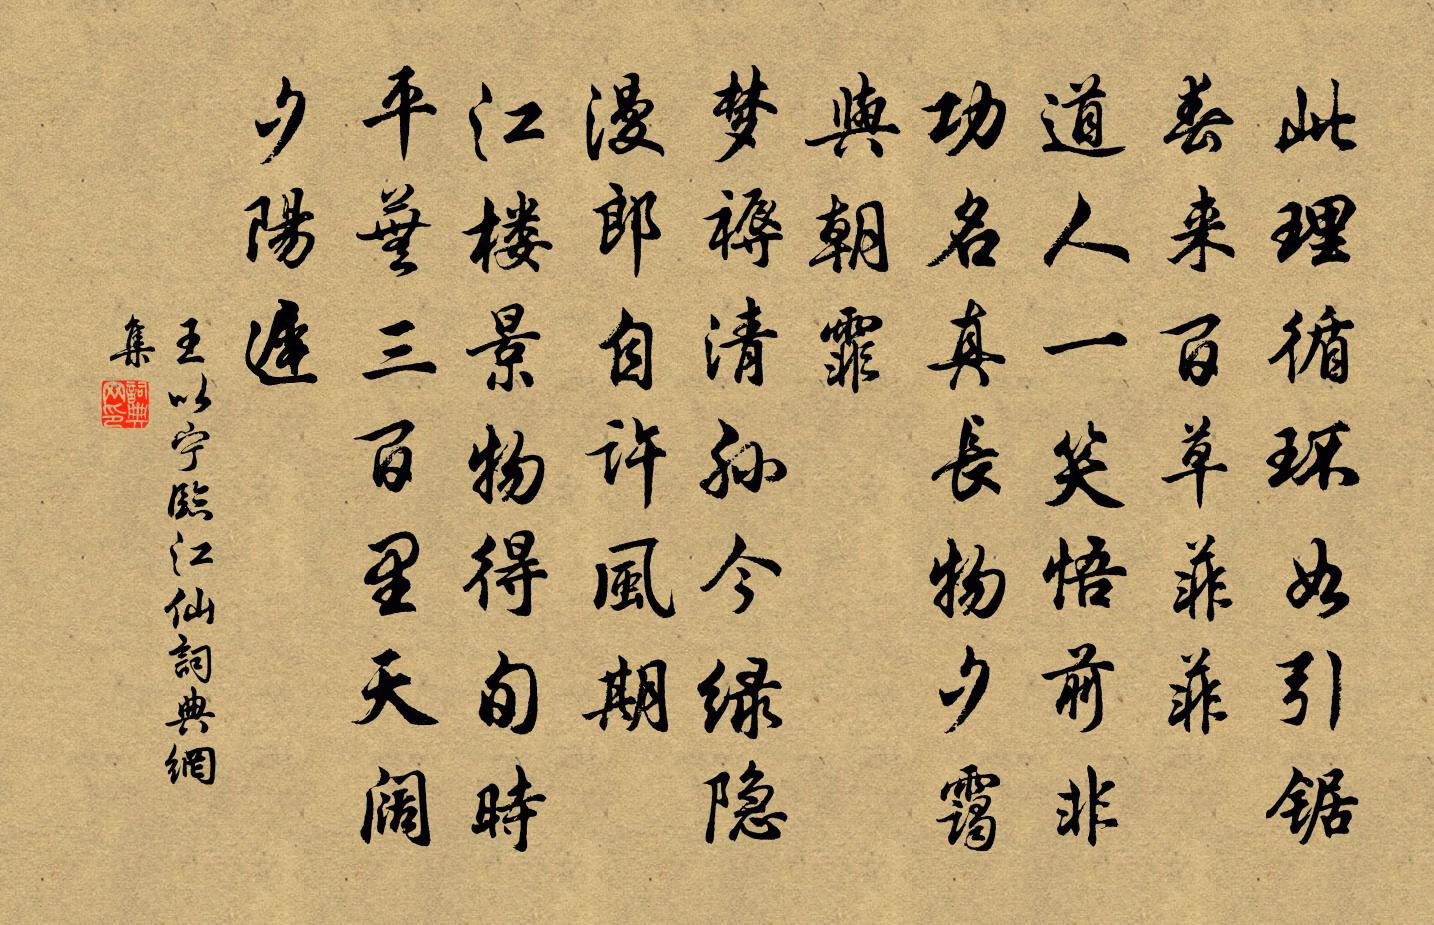 此理循环如引锯
春来百草菲菲
道人一笑悟前非
功名真長物夕靄
與朝霏
梦褥清孙今绿隐
漫郎自许風期
江楼景物得旬時
平蕪三百里天阔
夕陽遲
王以宁臨江仙詞典網
集
詞典網印